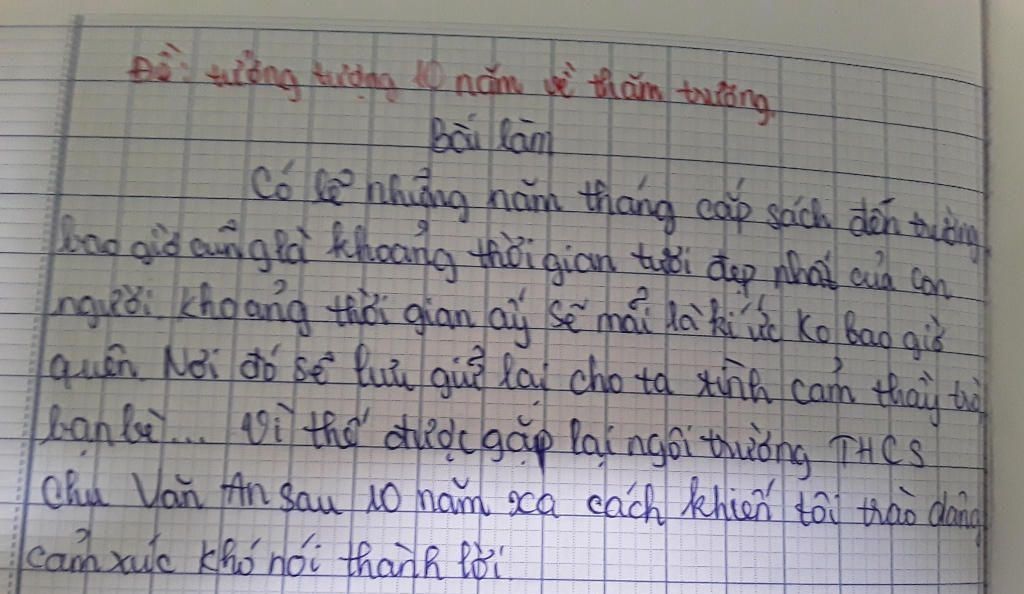 Đề: tưởng tượng 10 năm về thăm trường
Bài làm
Có lẽ những năm tháng cắp sách đến trường
bao giờ cũng là khoảng thời gian tươi đẹp nhất của con
người. khoảng thời gian ấy sẽ mải là kí ức ko bao giờ
quên Nơi đó sẽ lưu giữ lại cho ta tình cảm thầy trò
bạn bè... Vì thế được gặp lại ngôi trường THCS
Chu Văn An sau 10 năm xa cách khiến tôi trào dâng
cảm xúc khó nói thành lời.